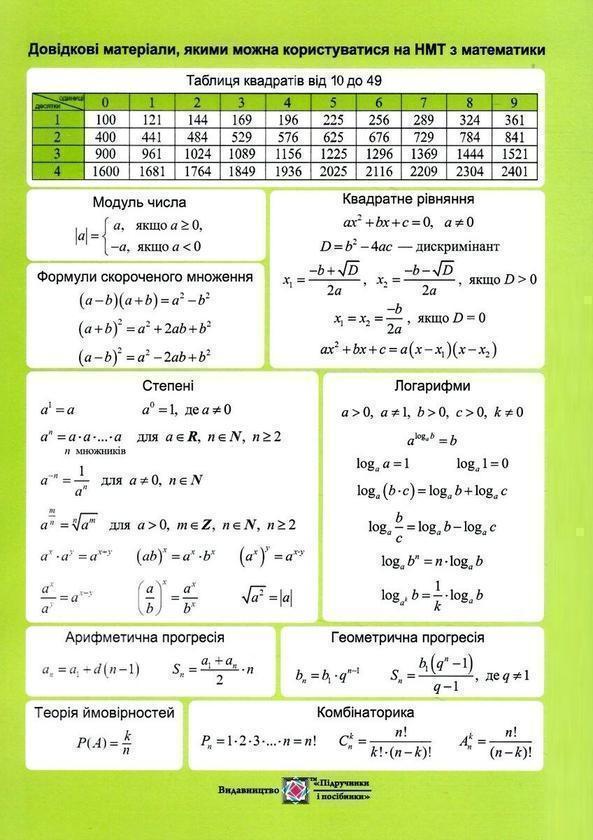 Довідкові матеріали, якими можна користуватися на НМТ з математики
Таблиця квадратів від 10 до 49
десятки одиниці 0 1 2 3 4 5 6 7 8 9
1 100 121 144 169 196 225 256 289 324 361
2 400 441 484 529 576 625 676 729 784 841
3 900 961 1024 1089 1156 1225 1296 1369 1444 1521
4 1600 1681 1764 1849 1936 2025 2116 2209 2304 2401
Модуль числа
|a| = { a, якщо a ≥ 0,
−a, якщо a < 0
Формули скороченого множення
(a−b)(a+b) = a² − b²
(a+b)² = a² + 2ab + b²
(a−b)² = a² − 2ab + b²
Квадратне рівняння
ax² + bx + c = 0, a ≠ 0
D = b² − 4ac — дискримінант
x₁ = (−b+√D)/2a, x₂ = (−b−√D)/2a, якщо D > 0
x₁ = x₂ = −b/2a, якщо D = 0
ax² + bx + c = a(x − x₁)(x − x₂)
Степені
a¹ = a a⁰ = 1, де a ≠ 0
aⁿ = a·a·...·a для a ∈ R, n ∈ N, n ≥ 2
n множників
a⁻ⁿ = 1/aⁿ для a ≠ 0, n ∈ N
a^(m/n) = ⁿ√(aᵐ) для a > 0, m ∈ Z, n ∈ N, n ≥ 2
aˣ · aʸ = aˣ⁺ʸ (ab)ˣ = aˣ · bˣ (aˣ)ʸ = aˣ·ʸ
aˣ/aʸ = aˣ⁻ʸ (a/b)ˣ = aˣ/bˣ √a² = |a|
Логарифми
a > 0, a ≠ 1, b > 0, c > 0, k ≠ 0
a^(logₐ b) = b
logₐ a = 1 logₐ 1 = 0
logₐ (b·c) = logₐ b + logₐ c
logₐ b/c = logₐ b − logₐ c
logₐ bⁿ = n · logₐ b
log_(aᵏ) b = 1/k · logₐ b
Арифметична прогресія
aₙ = a₁ + d(n−1) Sₙ = (a₁ + aₙ)/2 · n
Геометрична прогресія
bₙ = b₁ · qⁿ⁻¹ Sₙ = b₁(qⁿ − 1)/(q − 1), де q ≠ 1
Теорія ймовірностей
P(A) = k/n
Комбінаторика
Pₙ = 1·2·3·...·n = n! Cₙᵏ = n!/(k!·(n−k)!) Aₙᵏ = n!/(n−k)!
Видавництво ™ «Підручники
і посібники»